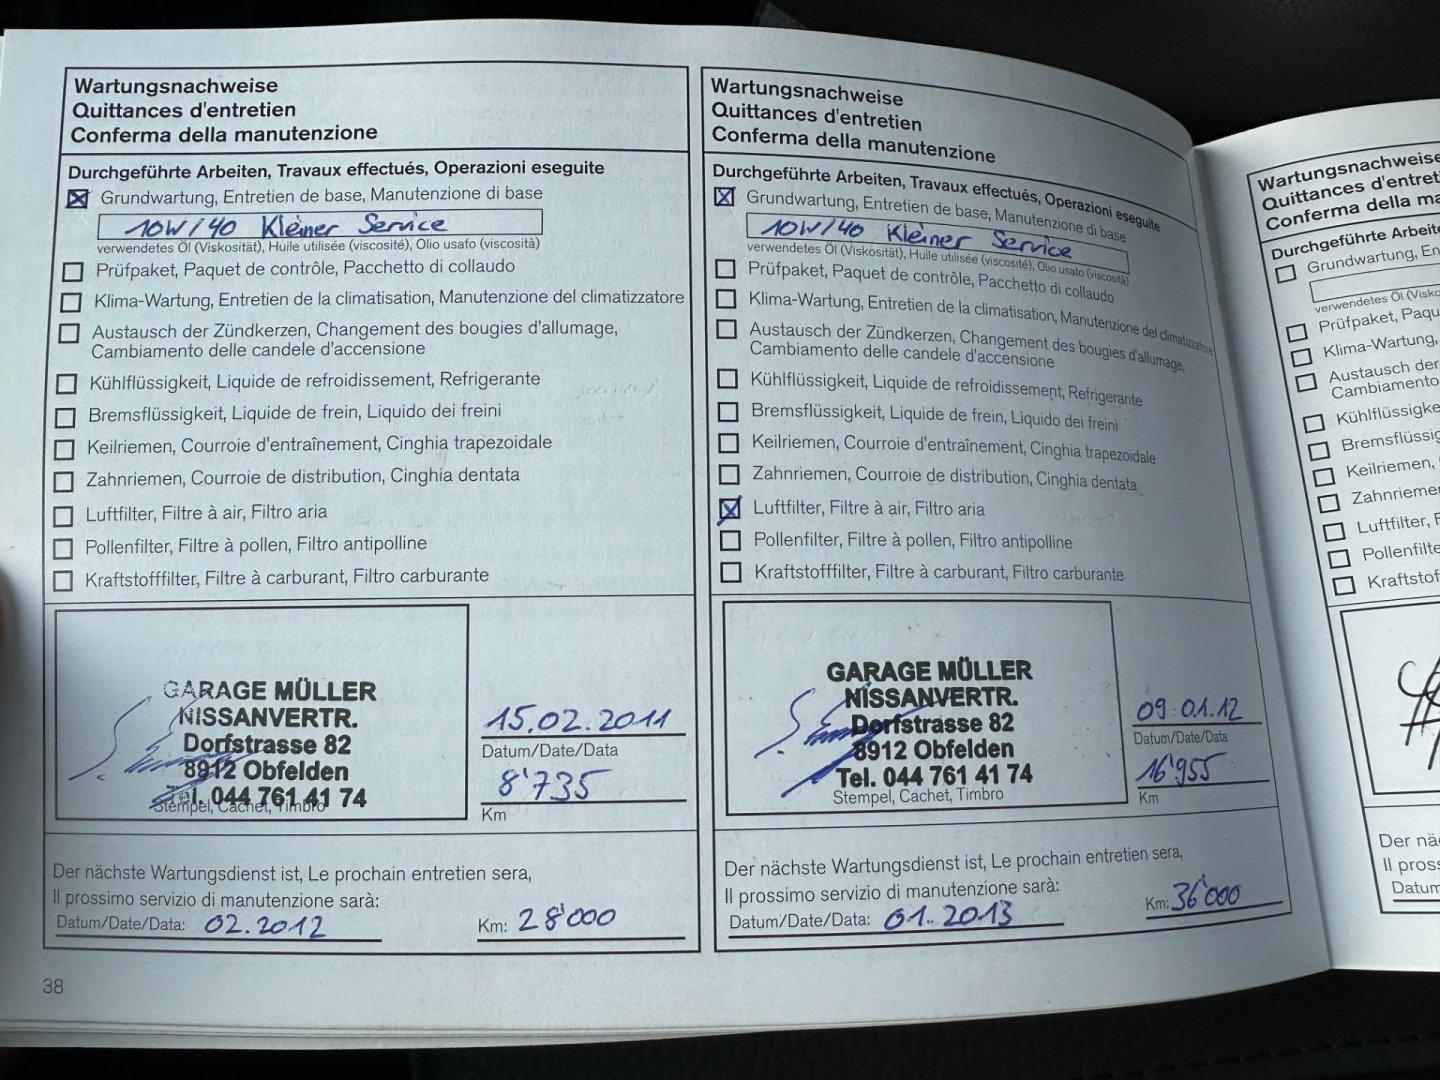 Wartungsnachweise
Quittances d'entretien
Conferma della manutenzione
Durchgeführte Arbeiten, Travaux effectués, Operazioni eseguite
Grundwartung, Entretien de base, Manutenzione di base
10W/40 Kleiner Service
verwendetes Öl (Viskosität), Huile utilisée (viscosité), Olio usato (viscosità)
Prüfpaket, Paquet de contrôle, Pacchetto di collaudo
Klima-Wartung, Entretien de la climatisation, Manutenzione del climatizzatore
Austausch der Zündkerzen, Changement des bougies d'allumage,
Cambiamento delle candele d'accensione
Kühlflüssigkeit, Liquide de refroidissement, Refrigerante
Bremsflüssigkeit, Liquide de frein, Liquido dei freini
Keilriemen, Courroie d'entraînement, Cinghia trapezoidale
Zahnriemen, Courroie de distribution, Cinghia dentata
Luftfilter, Filtre à air, Filtro aria
Pollenfilter, Filtre à pollen, Filtro antipolline
Kraftstofffilter, Filtre à carburant, Filtro carburante
GARAGE MÜLLER
NISSANVERTR.
Dorfstrasse 82
8912 Obfelden
Tel. 044 761 41 74
Stempel, Cachet, Timbro
15.02.2011
Datum/Date/Data
8'735
Km
Der nächste Wartungsdienst ist, Le prochain entretien sera,
Il prossimo servizio di manutenzione sarà:
Datum/Date/Data: 02.2012 Km: 28'000
38
Wartungsnachweise
Quittances d'entretien
Conferma della manutenzione
Durchgeführte Arbeiten, Travaux effectués, Operazioni eseguite
Grundwartung, Entretien de base, Manutenzione di base
10W/40 Kleiner Service
verwendetes Öl (Viskosität), Huile utilisée (viscosité), Olio usato (viscosità)
Prüfpaket, Paquet de contrôle, Pacchetto di collaudo
Klima-Wartung, Entretien de la climatisation, Manutenzione del climatizzatore
Austausch der Zündkerzen, Changement des bougies d'allumage,
Cambiamento delle candele d'accensione
Kühlflüssigkeit, Liquide de refroidissement, Refrigerante
Bremsflüssigkeit, Liquide de frein, Liquido dei freini
Keilriemen, Courroie d'entraînement, Cinghia trapezoidale
Zahnriemen, Courroie de distribution, Cinghia dentata
Luftfilter, Filtre à air, Filtro aria
Pollenfilter, Filtre à pollen, Filtro antipolline
Kraftstofffilter, Filtre à carburant, Filtro carburante
GARAGE MÜLLER
NISSANVERTR.
Dorfstrasse 82
8912 Obfelden
Tel. 044 761 41 74
Stempel, Cachet, Timbro
09.01.12
Datum/Date/Data
16'955
Km
Der nächste Wartungsdienst ist, Le prochain entretien sera,
Il prossimo servizio di manutenzione sarà:
Datum/Date/Data: 01.2013 Km: 36'000
Wartungsnachweise
Quittances d'entret
Conferma della ma
Durchgeführte Arbeite
Grundwartung, En
verwendetes Öl (Visko
Prüfpaket, Paqu
Klima-Wartung,
Austausch der
Cambiamento
Kühlflüssigke
Bremsflüssig
Keilriemen,
Zahnriemen
Luftfilter, F
Pollenfilte
Kraftstof
Der nä
Il pros
Datum